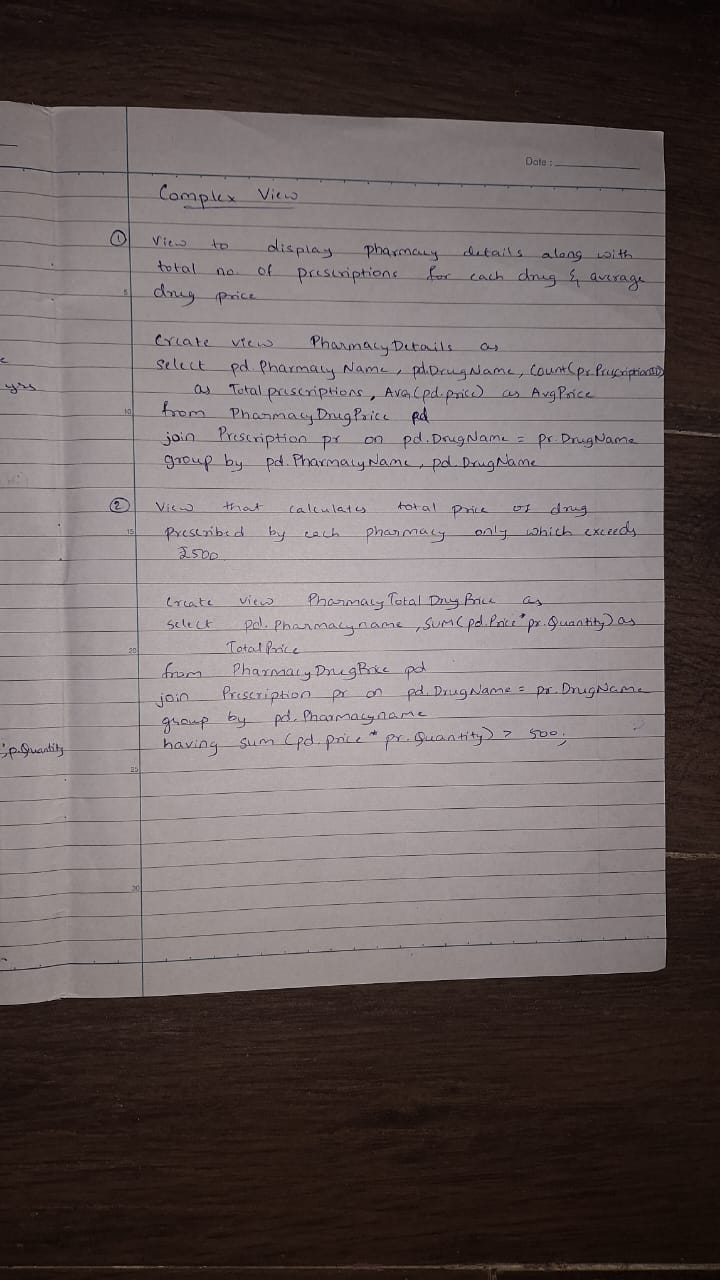 Date :
Complex View
① View to display pharmacy details along with
total no. of prescriptions for each drug & average
5 drug price
Create view PharmacyDetails as
select pd.PharmacyName, pd.DrugName, Count(pr.PrescriptionID)
as Totalprescriptions, AVG(pd.price) as AvgPrice
10 from PharmacyDrugPrice pd
join Prescription pr on pd.DrugName = pr.DrugName
group by pd.PharmacyName, pd.DrugName
② View that calculates total price of drug
15 Prescribed by each pharmacy only which exceeds
₹500
Create view PharmacyTotalDrugPrice as
select pd.Pharmacyname, SUM(pd.Price*pr.Quantity) as
20 TotalPrice
from PharmacyDrugPrice pd
join Prescription pr on pd.DrugName = pr.DrugName
group by pd.Pharmacyname
having sum(pd.price * pr.Quantity) > 500;
25
30
yrs
p.Quantity